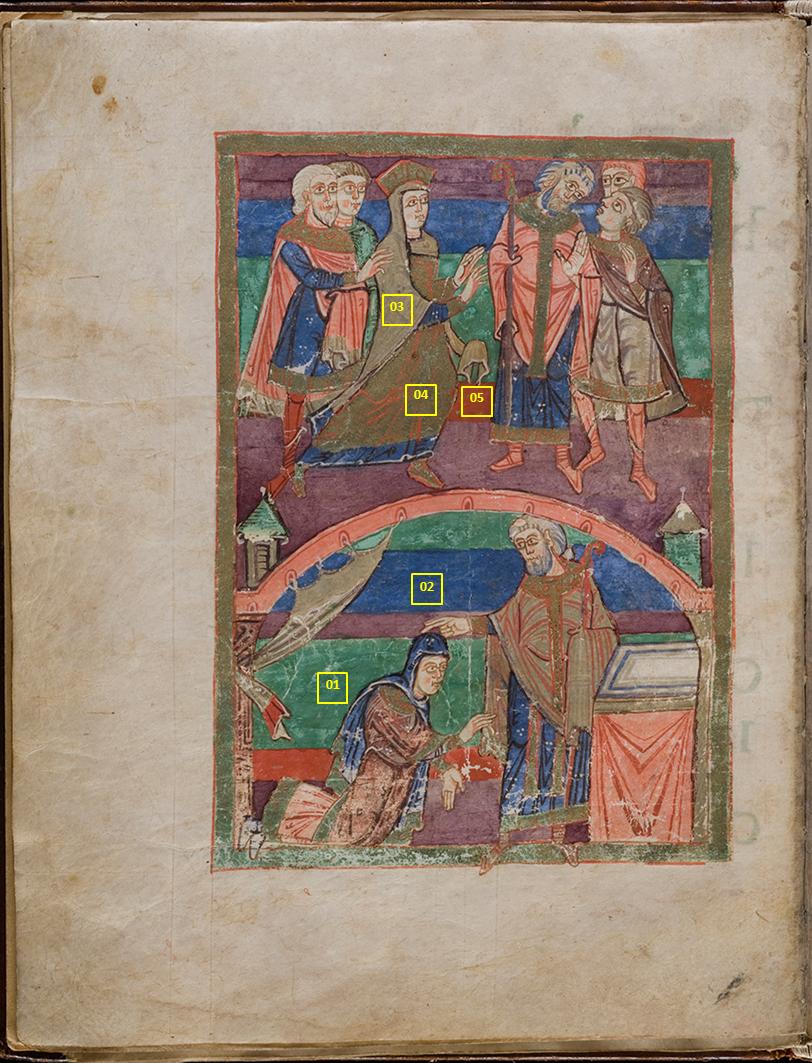 03
04 05
02
01